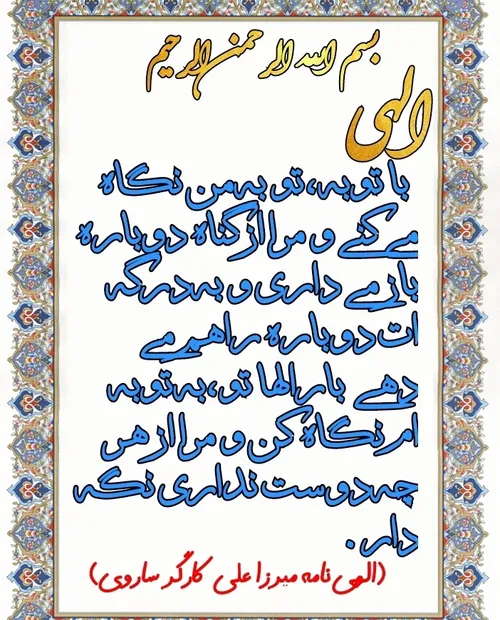 بسم الله الرحمن الرحیم
الهی
با توبه، تو به من نگاه
می کنی و مرا از گناه دوباره
باز می داری و به درگه
ات دوباره راهم می
دهی بارالها تو، به توبه
ام نگاه کن و مرا از هر
چه دوست نداری نگه
دار.
(الهی نامه میرزا علی کارگر ساروی)